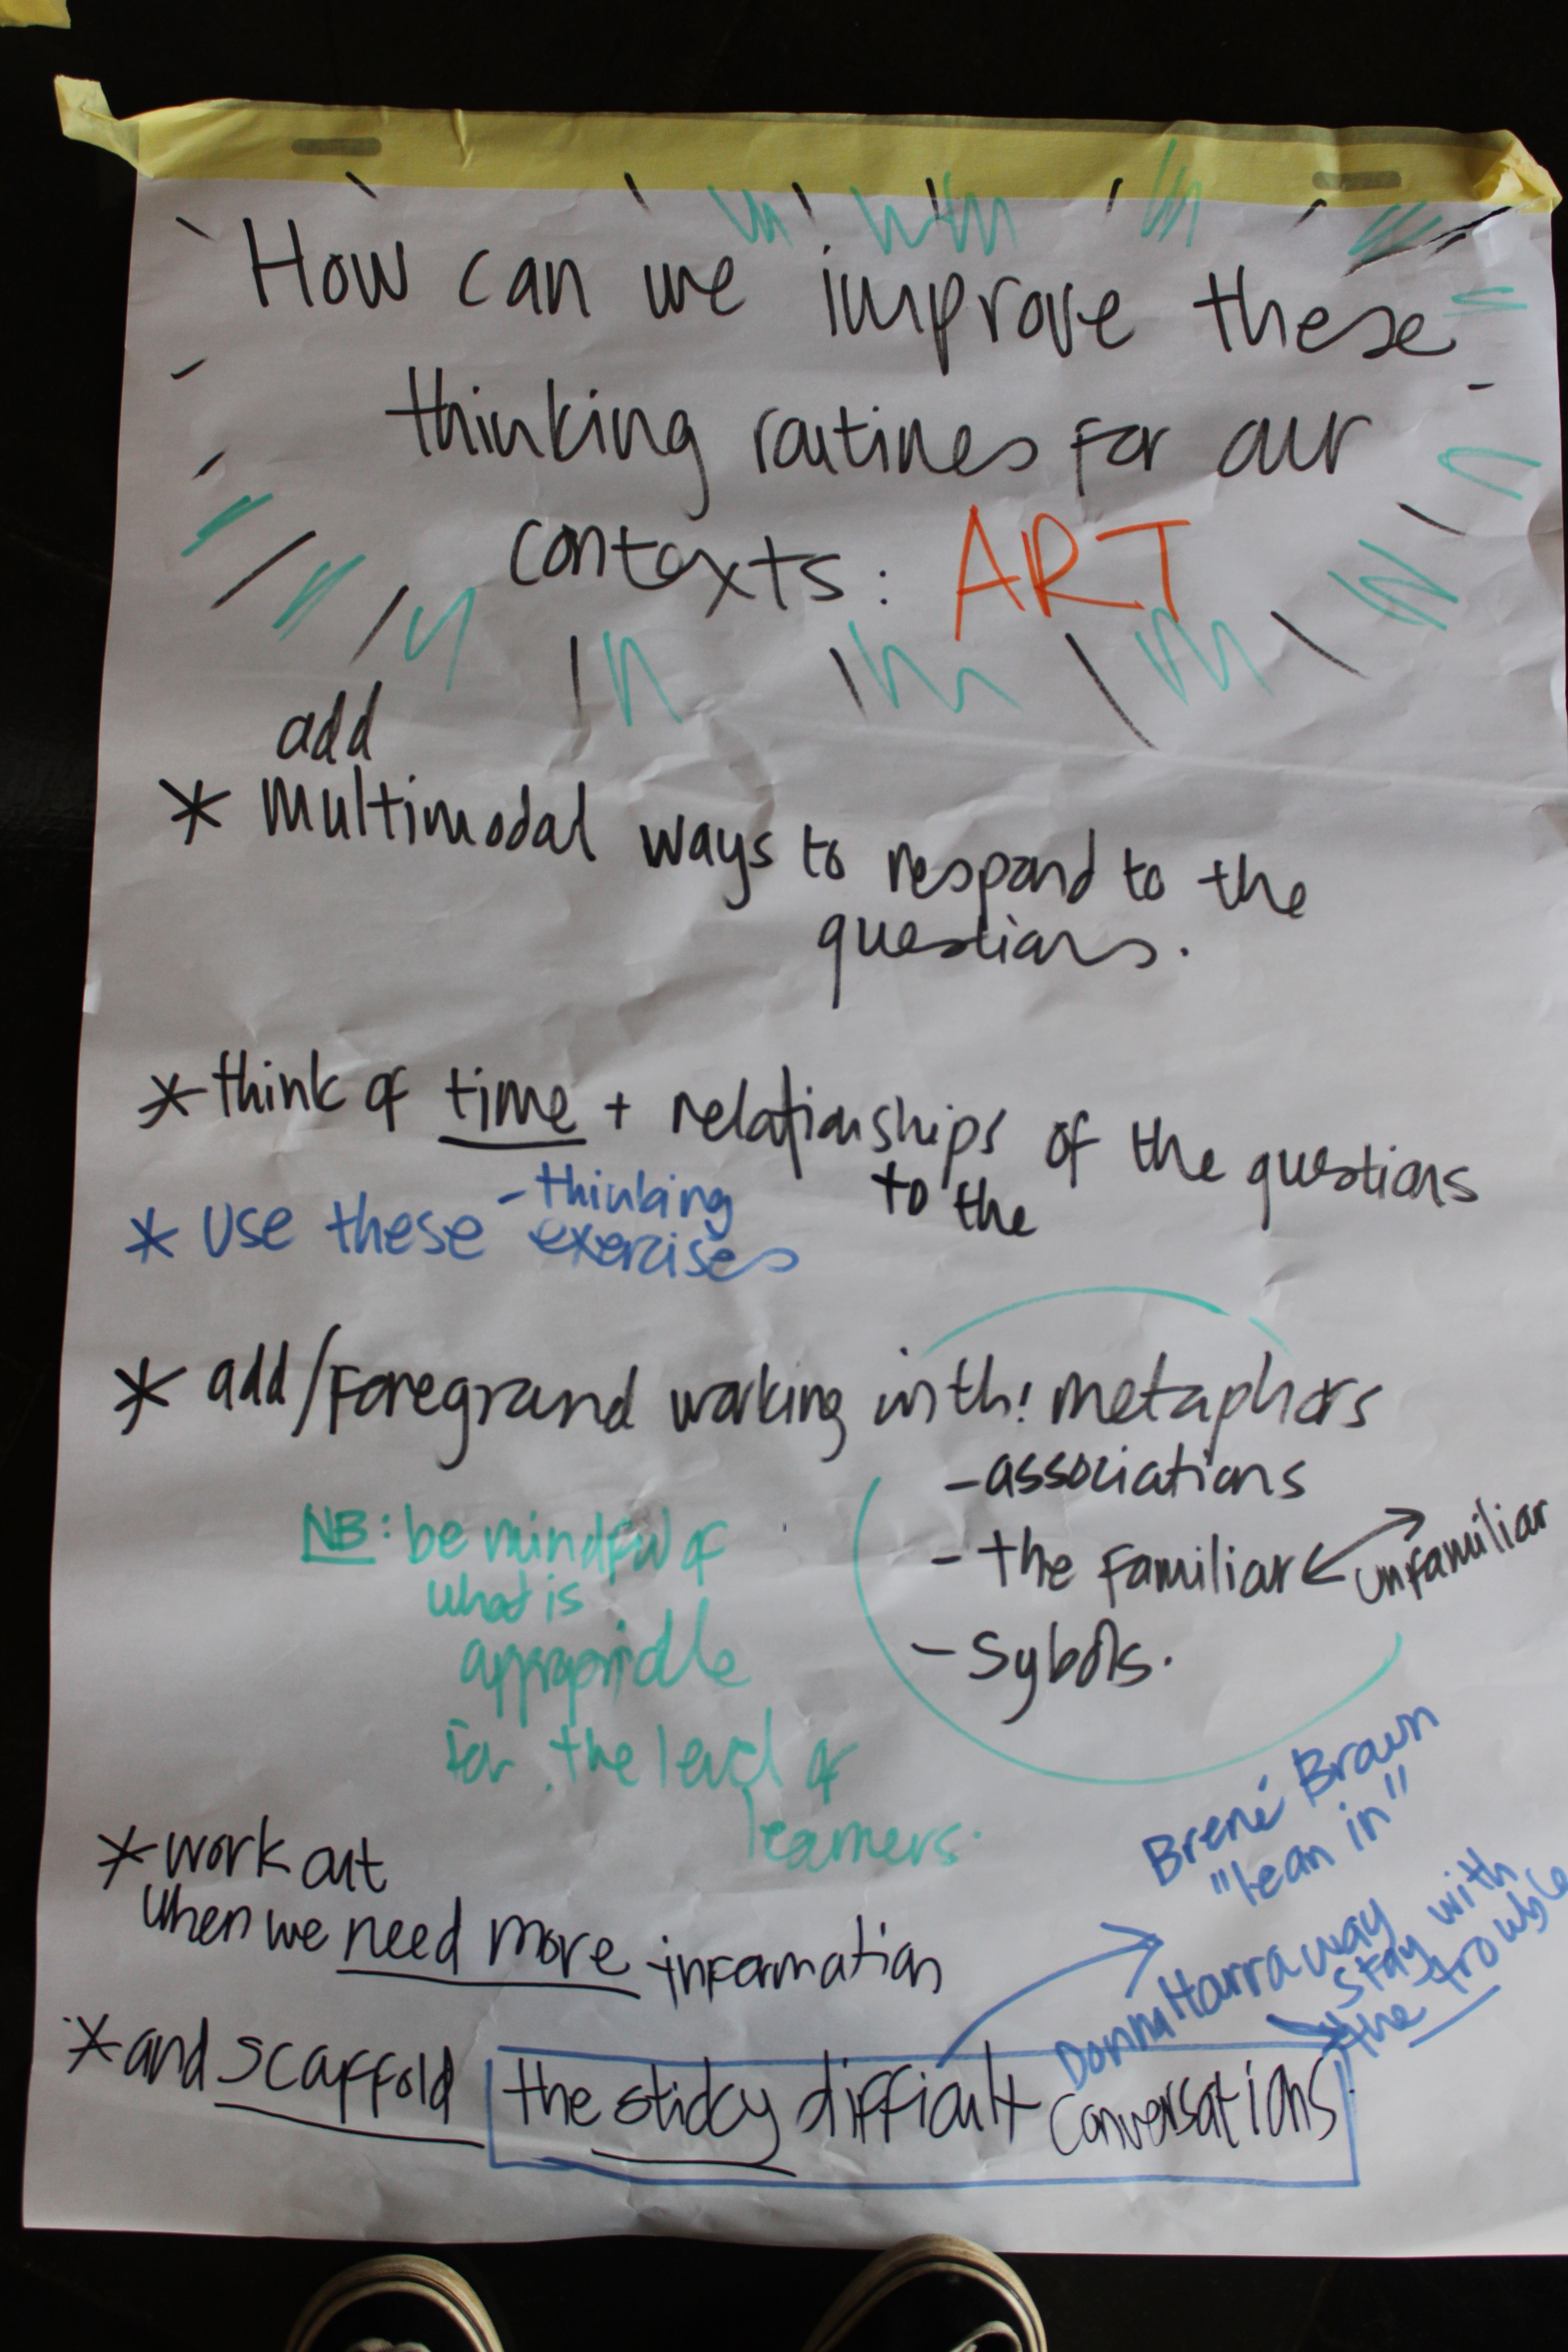 How can we improve these
thinking routines for our
contexts: ART
add
* multimodal ways to respond to the
questions.
* think of time + relationships of the questions
to the
* use these - thinking
exercises
* add/foreground working with: metaphors
- associations
- the familiar ↔ unfamiliar
- sybols.
NB: be mindful of
what is
appropriate
for the level of
learners.
* work out
when we need more information
Brené Brown
"lean in"
Donna Harraway
stay with
the trouble
* and scaffold the sticky difficult conversations.